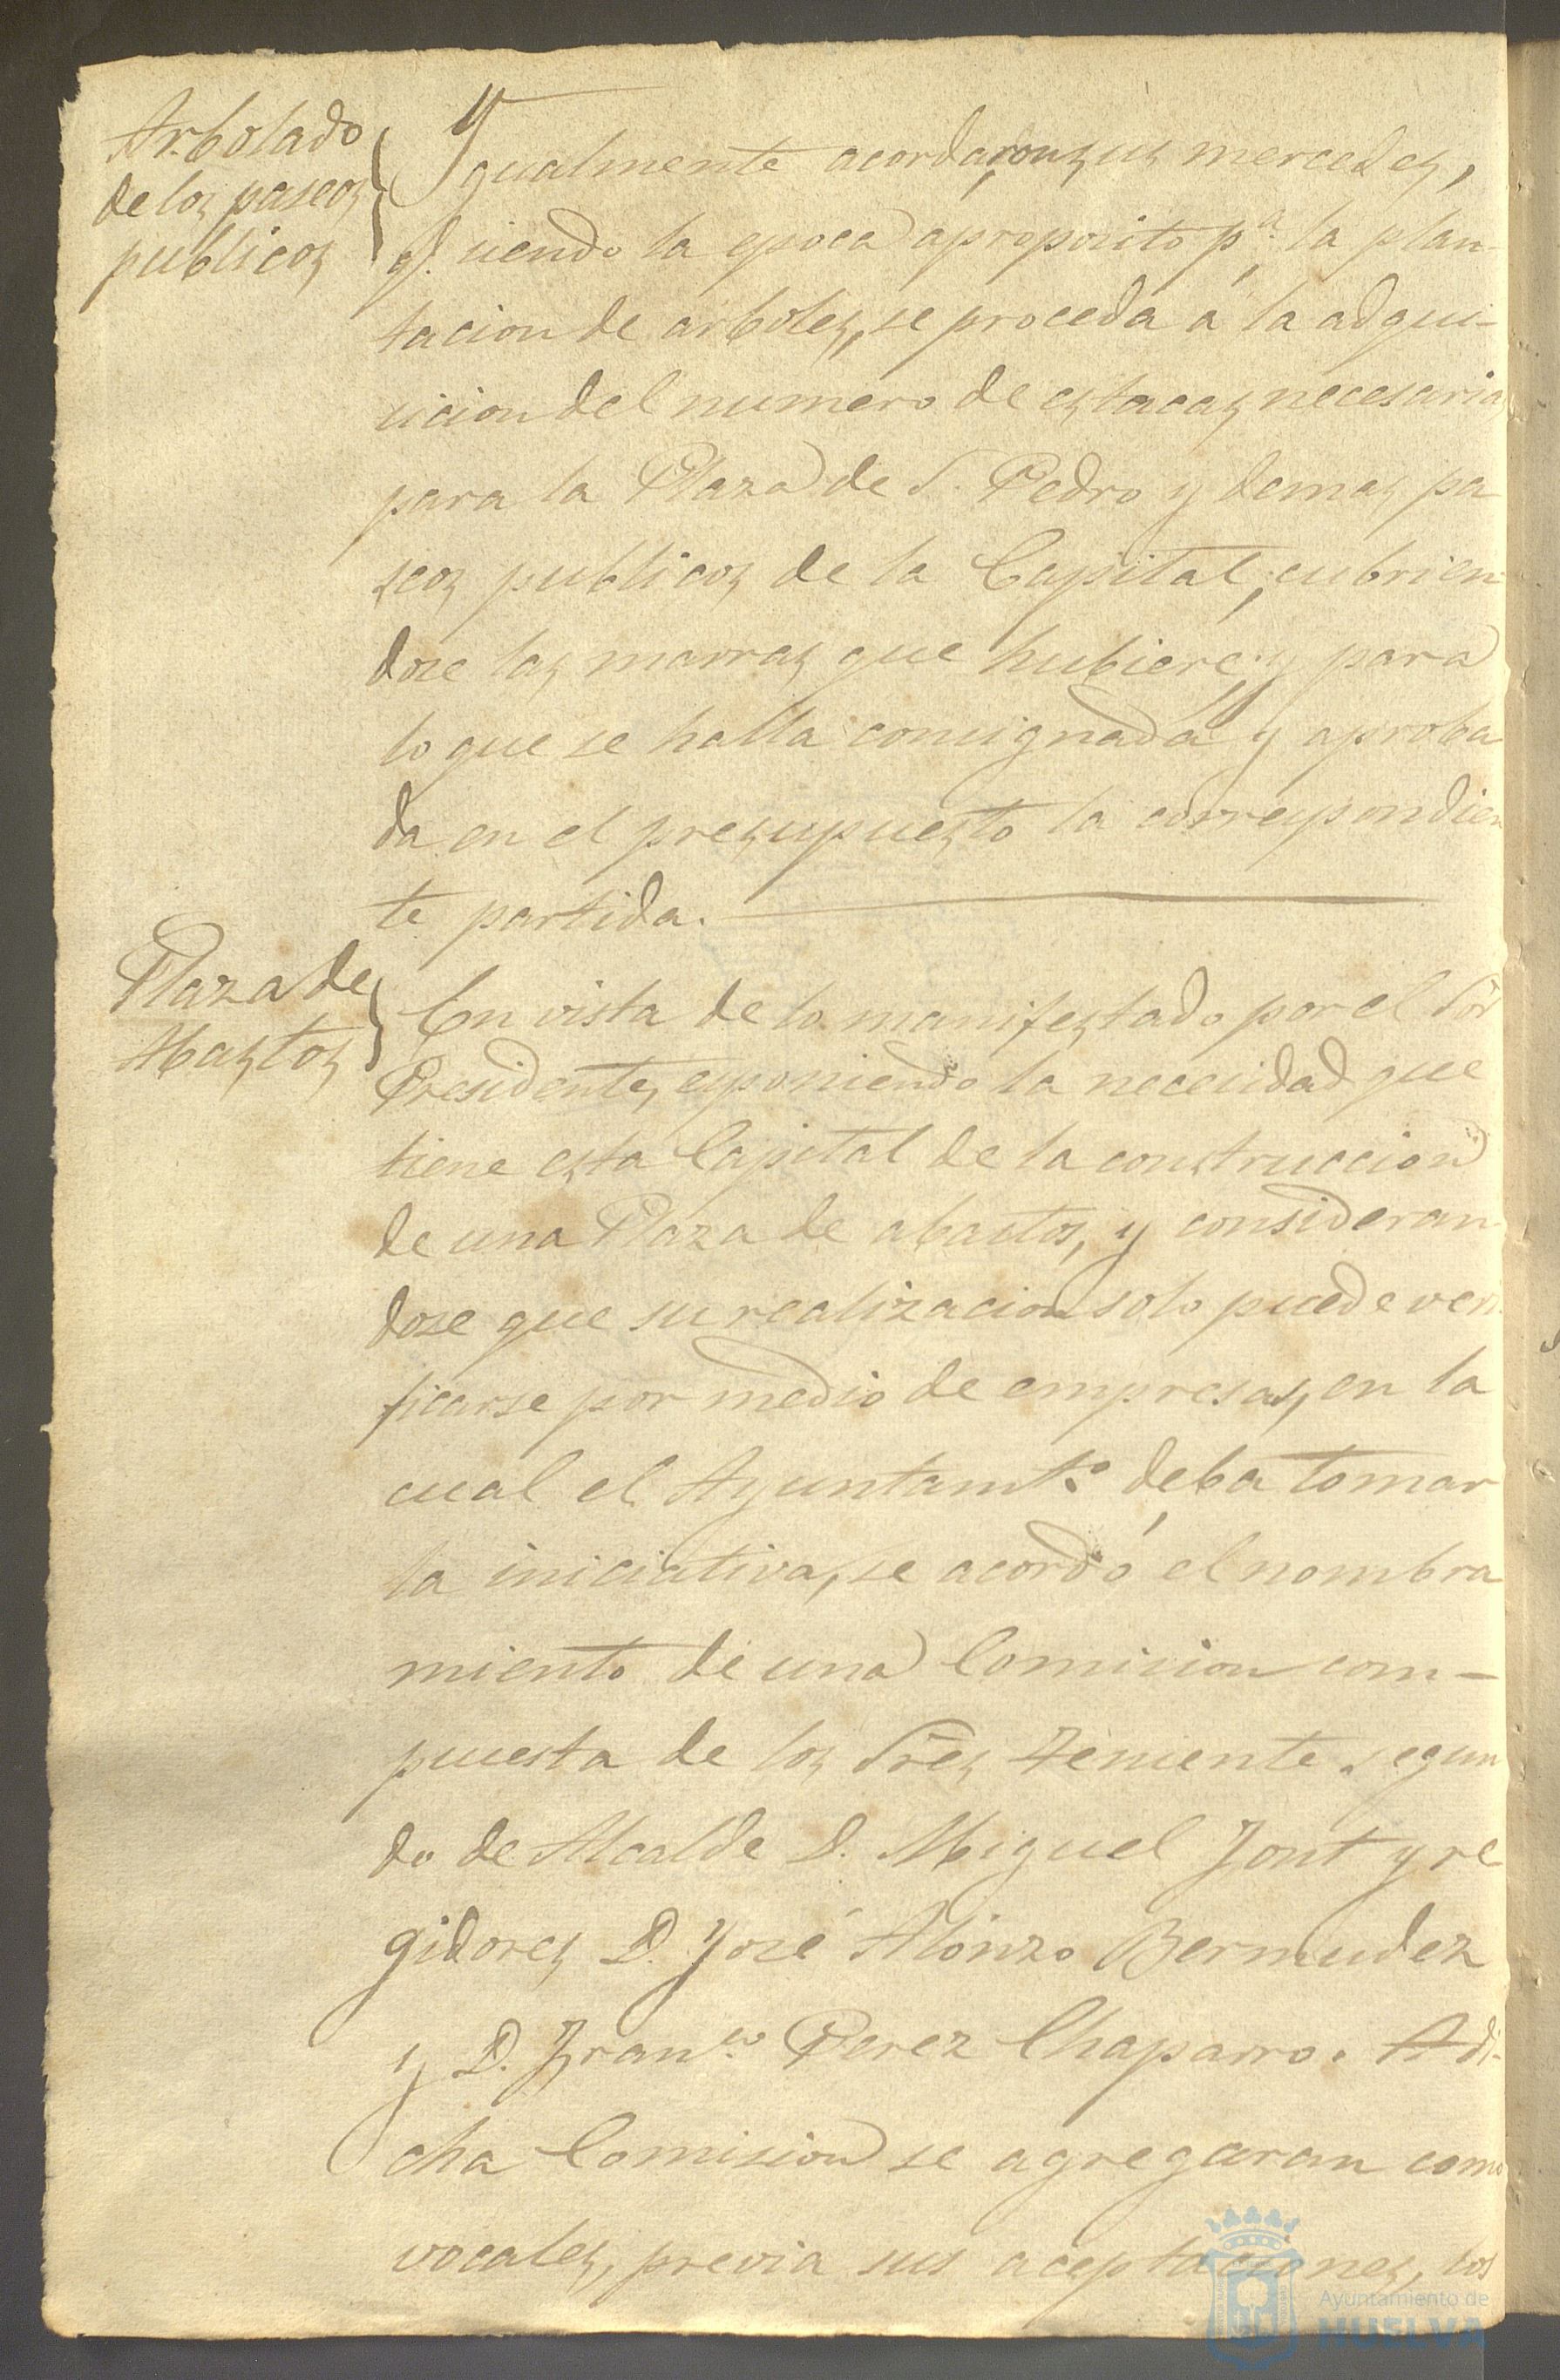 Arbolado
de los paseos
publicos
Ygualmente acordaron sus mercedes,
q. siendo la epoca aproposito pª. la plan-
tacion de arboles, se proceda á la adqui-
sicion del numero de estacas necesaria
para la Plaza de S. Pedro y demas pa
seos publicos de la Capital, cubrien-
dose las marras que hubiere; y para
lo que se halla consignada y aproba
da en el presupuesto la correspondien
te partida.
Plaza de
Abastos
En vista de lo manifestado por el Sor
Presidente, esponiendo la necesidad que
tiene esta Capital de la construccion
de una Plaza de abastos, y consideran-
dose que su realizacion solo puede veri
ficarse por medio de empresas, en la
cual el Ayuntamtº. deba tomar
la iniciativa, se acordó el nombra
miento de una Comision com-
puesta de los Sres Teniente segun
do de Alcalde D. Miguel Font y re
gidores D. José Alonzo Bermudez
y D. Franco. Perez Chaparro. A di-
cha Comision se agregaran como
vocales, previa sus aceptaciones, los
Ayuntamiento de
HUELVA